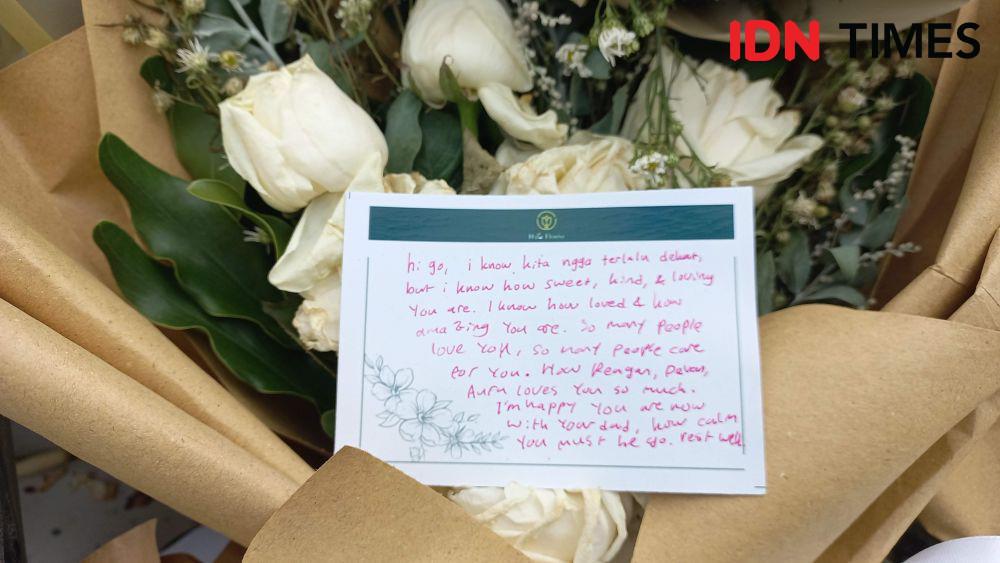 IDN TIMES
hi go, i know kita ngga terlalu dekat,
but i know how sweet, kind, & loving
You are. I know how loved & how
amazing You are. So many people
love You, so many people care
for You. How Rengan,
Aura loves You so much.
I'm happy You are now
with Your dad, how calm
You must be go. rest well